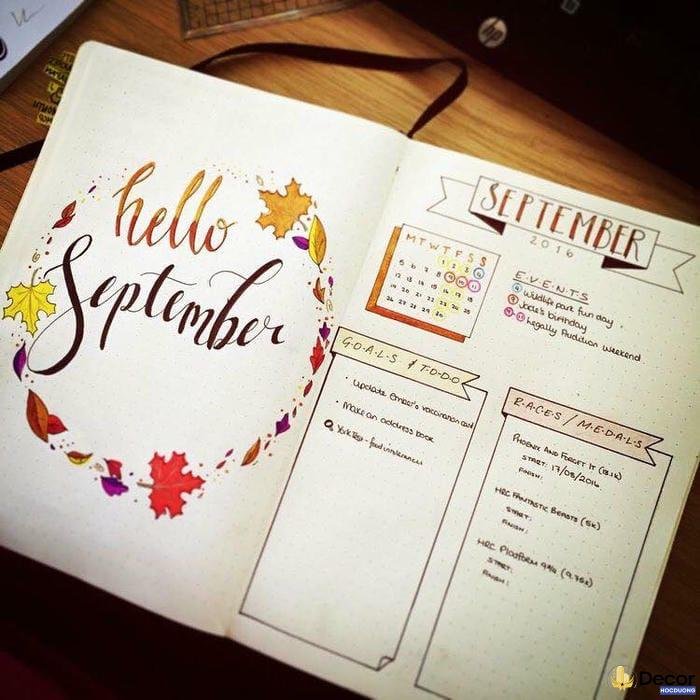 hello
September
SEPTEMBER
2016
M T W T F S S
1 2 3 4
5 6 7 8 9 10 11
12 13 14 15 16 17 18
19 20 21 22 23 24 25
26 27 28 29 30
EVENTS
Wildlife park fun day
Jodie's birthday
Legally Audition weekend
GOALS & TO DO
• Update Ember's vaccination card
• Make an address book
York Test - food intolerances
RACES / MEDALS
PHOENIX AND FORGET IT (13.1k)
START: 17/08/2016
FINISH:
HRC FANTASTIC BEASTS (5k)
START:
FINISH:
HRC PLATFORM 9¾ (9.75k)
START:
FINISH:
hp
Decor
HOCDUONG